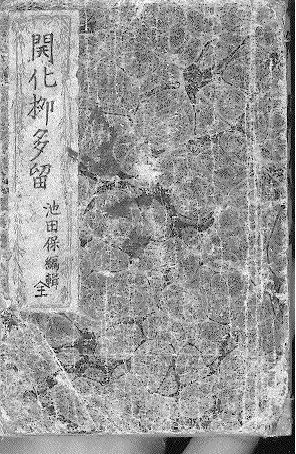 開化柳多留
池田保編輯
全